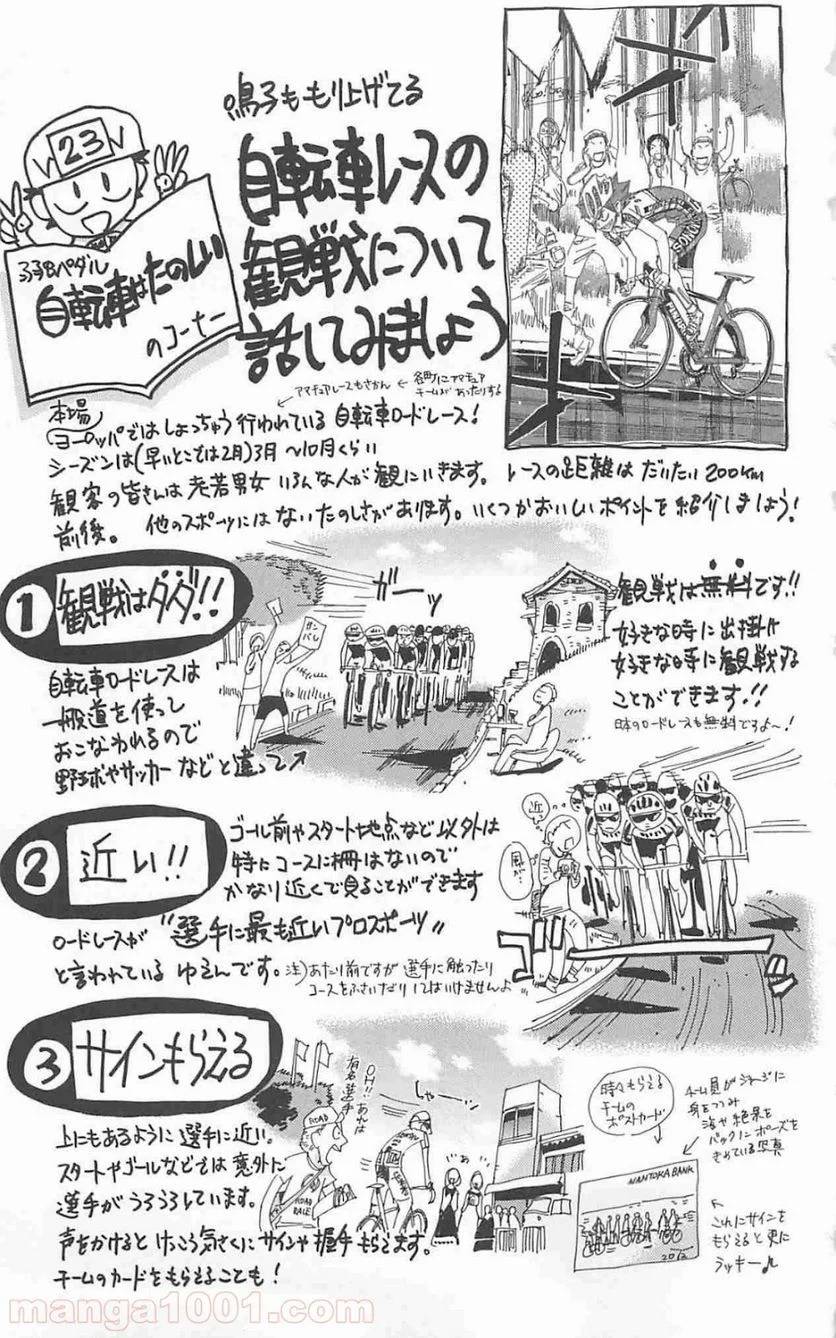 鳴子ももり上げてる
自転車レースの
観戦について
話してみましょう
23
弱虫ペダル
自転車はたのしい
のコーナー
アマチュアレースもさかん ← 各町にアマチュア
チームがあったりする
本場
ヨーロッパではしょっちゅう行われている自転車ロードレース!
シーズンは(早いとこでは2月)3月〜10月くらい
観客の皆さんは老若男女いろんな人が観にいきます。レースの距離はだいたい200km
前後。他のスポーツにはないたのしさがあります。いくつかおいしいポイントを紹介しましょう!
① 観戦はタダ!!
自転車ロードレースは
一般道を使って
おこなわれるので
野球やサッカーなどと違って
ガンバレ
ガーッ
観戦は無料です!!
好きな時に出掛け
好きな時に観戦する
ことができます!!
日本のロードレースも無料ですよ〜!
② 近い!!
ゴール前やスタート地点など以外は
特にコースに柵はないので
かなり近くで見ることができます
ロードレースが"選手に最も近いプロスポーツ"
と言われているゆえんです。
注)あたり前ですが選手に触ったり
コースをふさいだりしてはいけませんよ
近
風が…
ゴッ
③ サインもらえる
上にもあるように選手に近い。
スタートやゴールなどでは意外に
選手がうろうろしています。
声をかけるとけっこう気さくにサインや握手もらえます。
チームのカードをもらえることも!
OH!!あれは
有名選手
ROAD
ROAD
RACE
しゃーッ
時々もらえる
チームの
ポストカード
チーム員がジャージに
身をつつみ
海や絶景を
バックにポーズを
きめている写真
NANTOKA BANK
2012
これにサインを
もらえると更に
ラッキー♪
manga1001.com